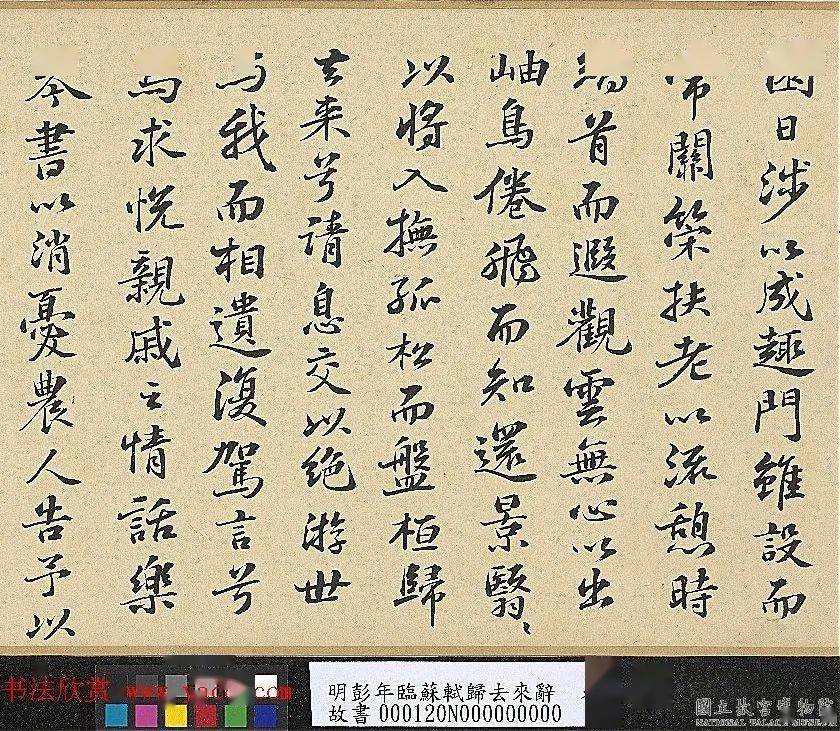 園日涉以成趣門雖設而
常關策扶老以流憩時
矯首而遐觀雲無心以出
岫鳥倦飛而知還景翳〻
以將入撫孤松而盤桓歸
去来兮請息交以絶游世
與我而相遺復駕言兮
焉求悦親戚之情話樂
琴書以消憂農人告予以
书法欣赏
明彭年臨蘇軾歸去來辭
故書 000120N000000000
國立故宮博物院
NATIONAL PALACE MUSEUM